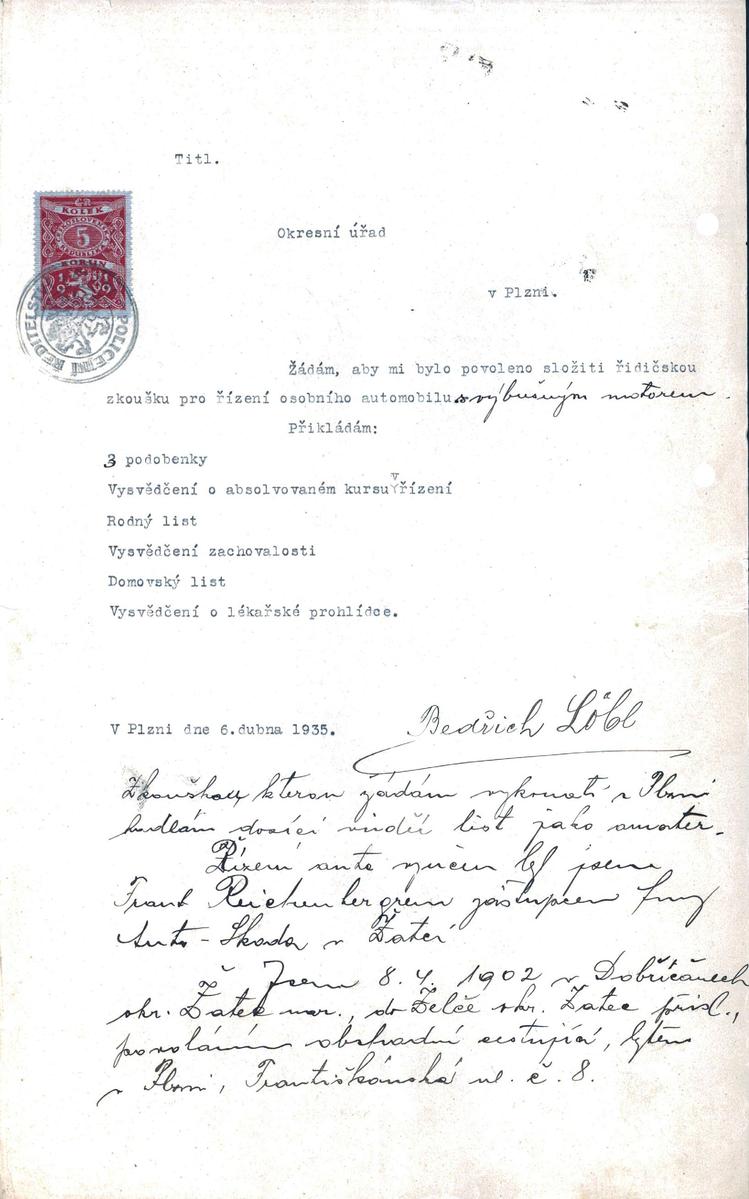 Titl.
ČR
KOLEK
ČESKOSLOVENSKÁ
5
REPUBLIKA
KORUN
1919
POLICEJNÍ ŘEDITELST
Okresní úřad
v Plzni.
Žádám, aby mi bylo povoleno složiti řidičskou
zkoušku pro řízení osobního automobilu s výbušným motorem.
Přikládám:
3 podobenky
Vysvědčení o absolvovaném kursu v řízení
Rodný list
Vysvědčení zachovalosti
Domovský list
Vysvědčení o lékařské prohlídce.
V Plzni dne 6.dubna 1935.
Bedřich Löbl
Zkoušku kterou žádám vykonati v Plzni
hodlám docíci vůdčí list jako amater.
Řízení auta vyučen byl jsem
Frant Reichenbergrem zástupcem fmy
Auto-Skoda v Žatci
Jsem 8.4. 1902 v Dobříčanech
okr. Žatec nar., do Želče okr. Žatec přísl.,
povoláním obchodní cestující, bytem
v Plzni, Františkánská ul. č. 8.